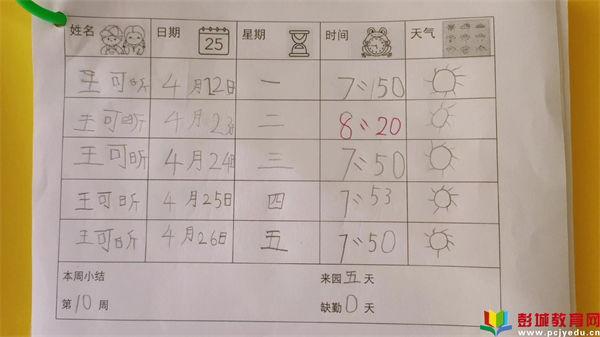 姓名 日期 25 星期 时间 天气
王可昕 4月22日 一 7:50
王可昕 4月23日 二 8:20
王可昕 4月24日 三 7:50
王可昕 4月25日 四 7:53
王可昕 4月26日 五 7:50
本周小结 来园五天
第10周 缺勤0天
彭城教育网
www.pcjyedu.cn